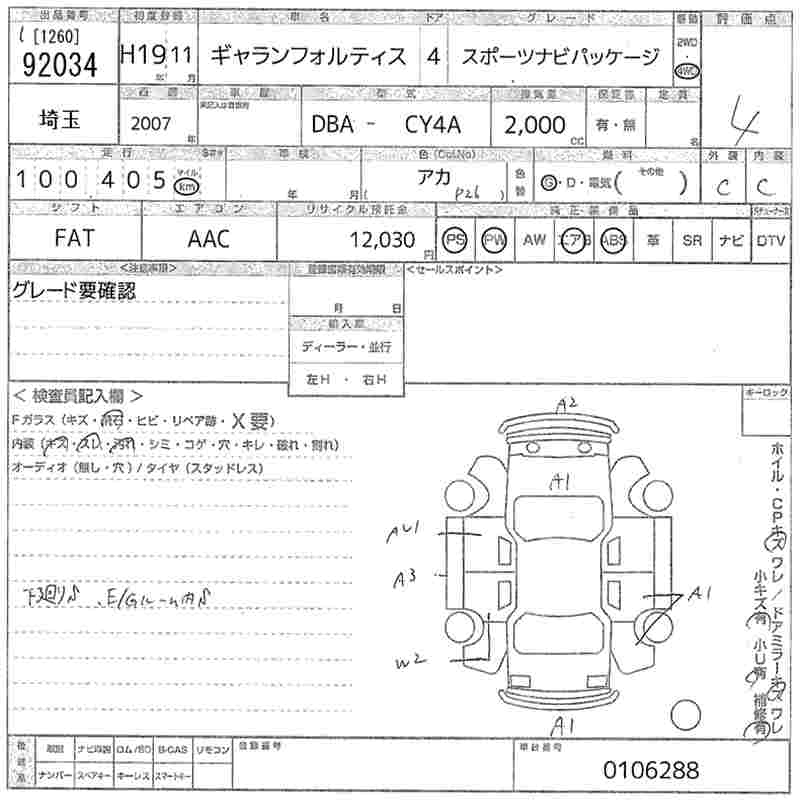 出品番号 初度登録 車名 ドア グレード 駆動 評価点
[1260]
92034 H19 11 年 月 ギャランフォルティス 4 スポーツナビパッケージ 2WD 4WD 4
埼玉 西暦 車歴 型式 排気量 保証書 定員
2007 年 DBA - CY4A 2,000 CC 有・無 名
走行 車検 色(Col.No) 燃料 外装 内装
100,405 マイル km 年 月 アカ (P26) 色替 G・D・電気( その他 ) C C
シフト エアコン リサイクル預託金 純正装備品
FAT AAC 12,030円 PS PW AW エアB ABS 革 SR ナビ DTV
<注意事項> 登録書類有効期限 <セールスポイント>
グレード要確認
月 日
輸入車
ディーラー・並行
左H ・ 右H
< 検査員記入欄 > キーロック
Fガラス(キズ・飛石・ヒビ・リペア跡・X要)
内装(キズ・スレ・汚れ・シミ・コゲ・穴・キレ・破れ・割れ)
オーディオ(無し・穴)/タイヤ(スタッドレス)
A2
A1
AU1
A3
A1
W2
A1
下回りS、E/Gルーム内S
ホイル・CPキズ ワレ/ドアミラーキズ ワレ
小キズ有 小U有 補修有
後日品 取説 ナビ取説 ロム/SD B-CAS リモコン 登録番号 車台番号
ナンバー スペアキー キーレス スマートキー 0106288